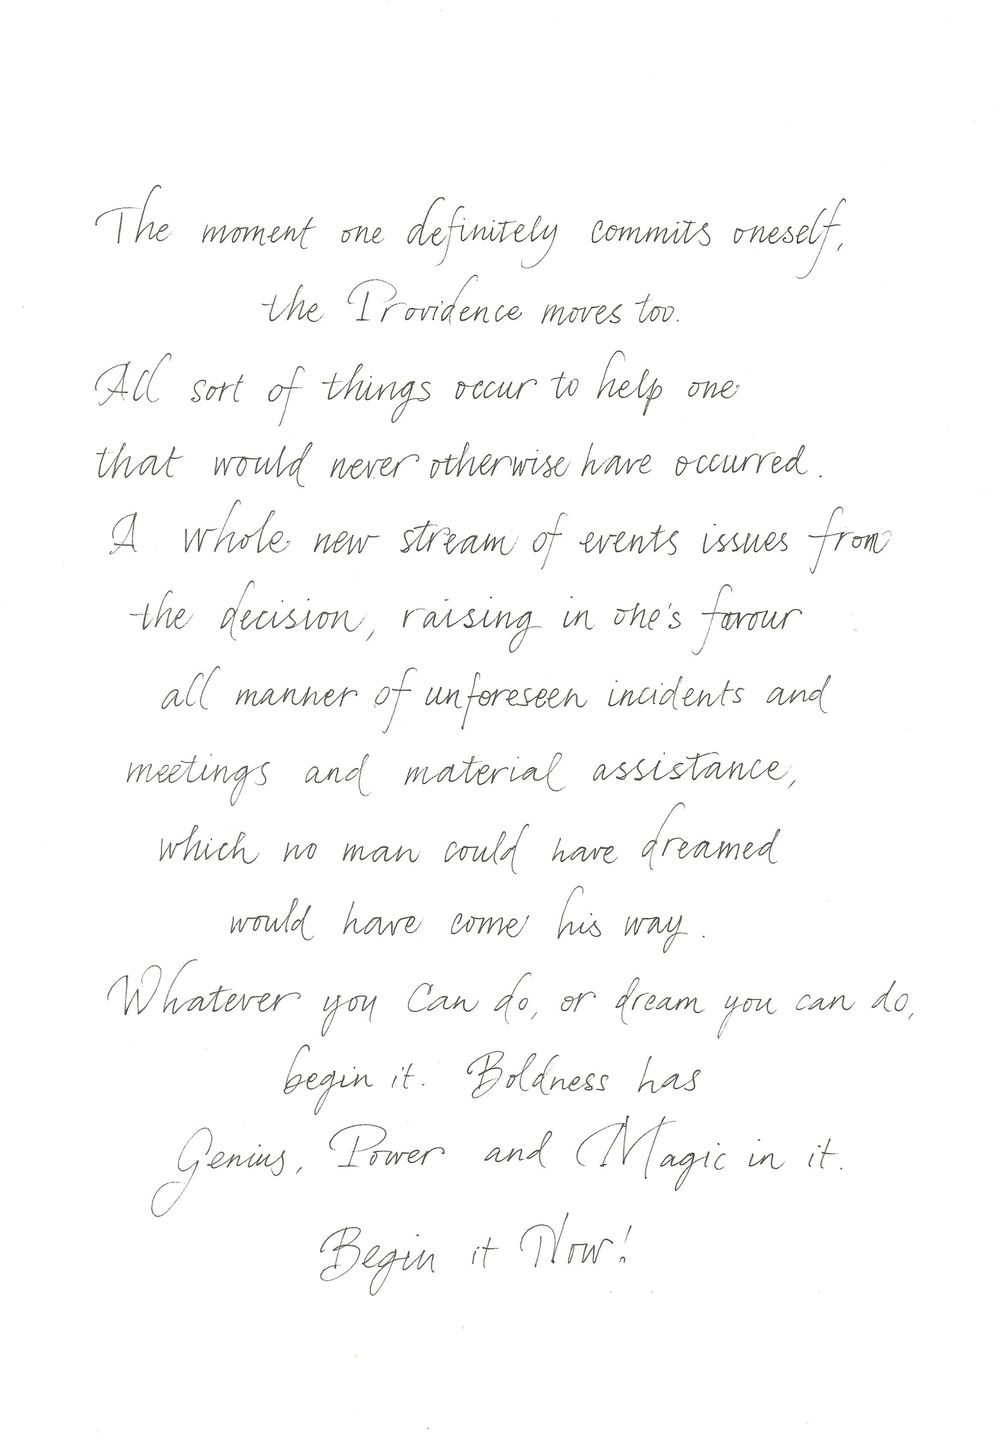 The moment one definitely commits oneself,
the Providence moves too.
All sort of things occur to help one
that would never otherwise have occurred.
A whole new stream of events issues from
the decision, raising in one's favour
all manner of unforeseen incidents and
meetings and material assistance,
which no man could have dreamed
would have come his way.
Whatever you Can do, or dream you can do,
begin it. Boldness has
Genius, Power and Magic in it.
Begin it Now!